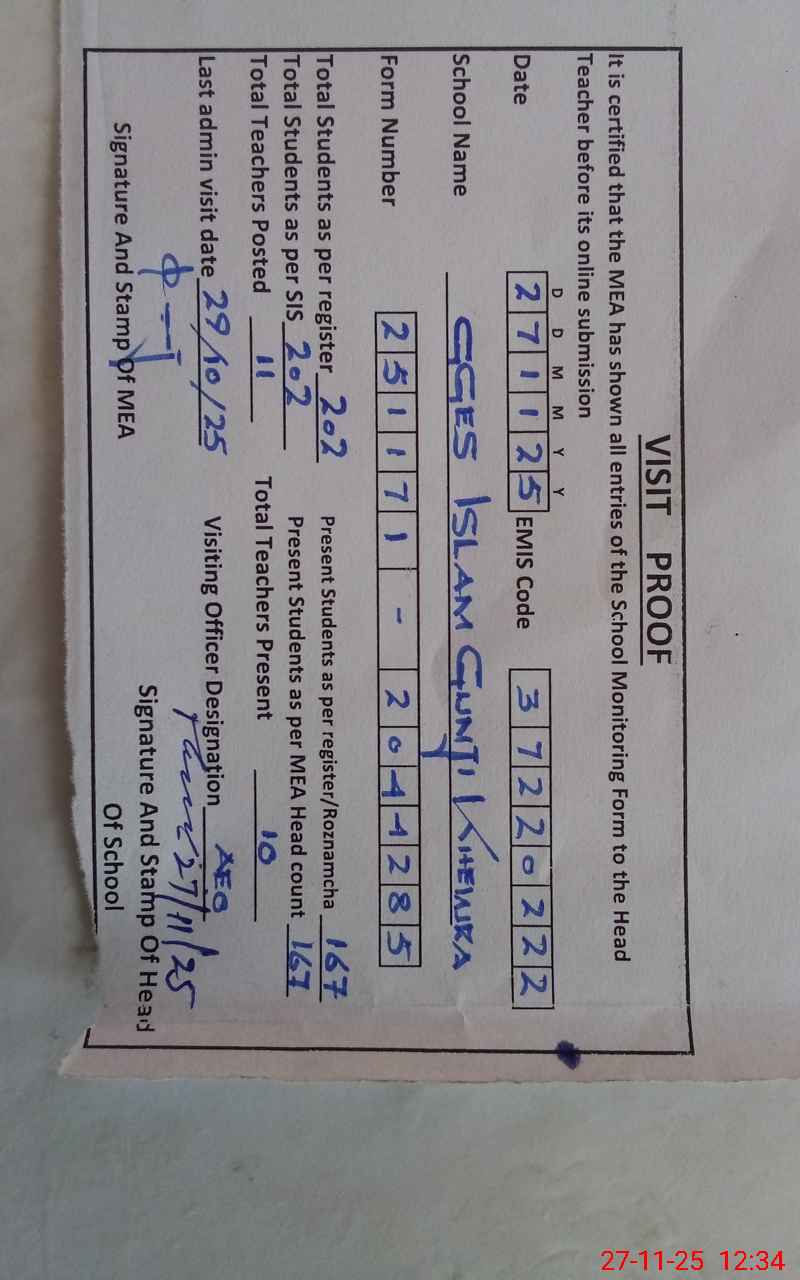 VISIT PROOF
It is certified that the MEA has shown all entries of the School Monitoring Form to the Head
Teacher before its online submission
D D M M Y Y
Date 2 7 1 1 2 5 EMIS Code 3 7 2 2 0 2 2 2
School Name GGES ISLAM GUNJ KHEWRA
Form Number 2 5 1 1 7 1 - 2 0 4 4 2 8 5
Total Students as per register 202 Present Students as per register/Roznamcha 167
Total Students as per SIS 202 Present Students as per MEA Head count 167
Total Teachers Posted 11 Total Teachers Present 10
Last admin visit date 29/10/25 Visiting Officer Designation AEO
27/11/25
Signature And Stamp Of MEA Signature And Stamp Of Head
Of School
27-11-25 12:34